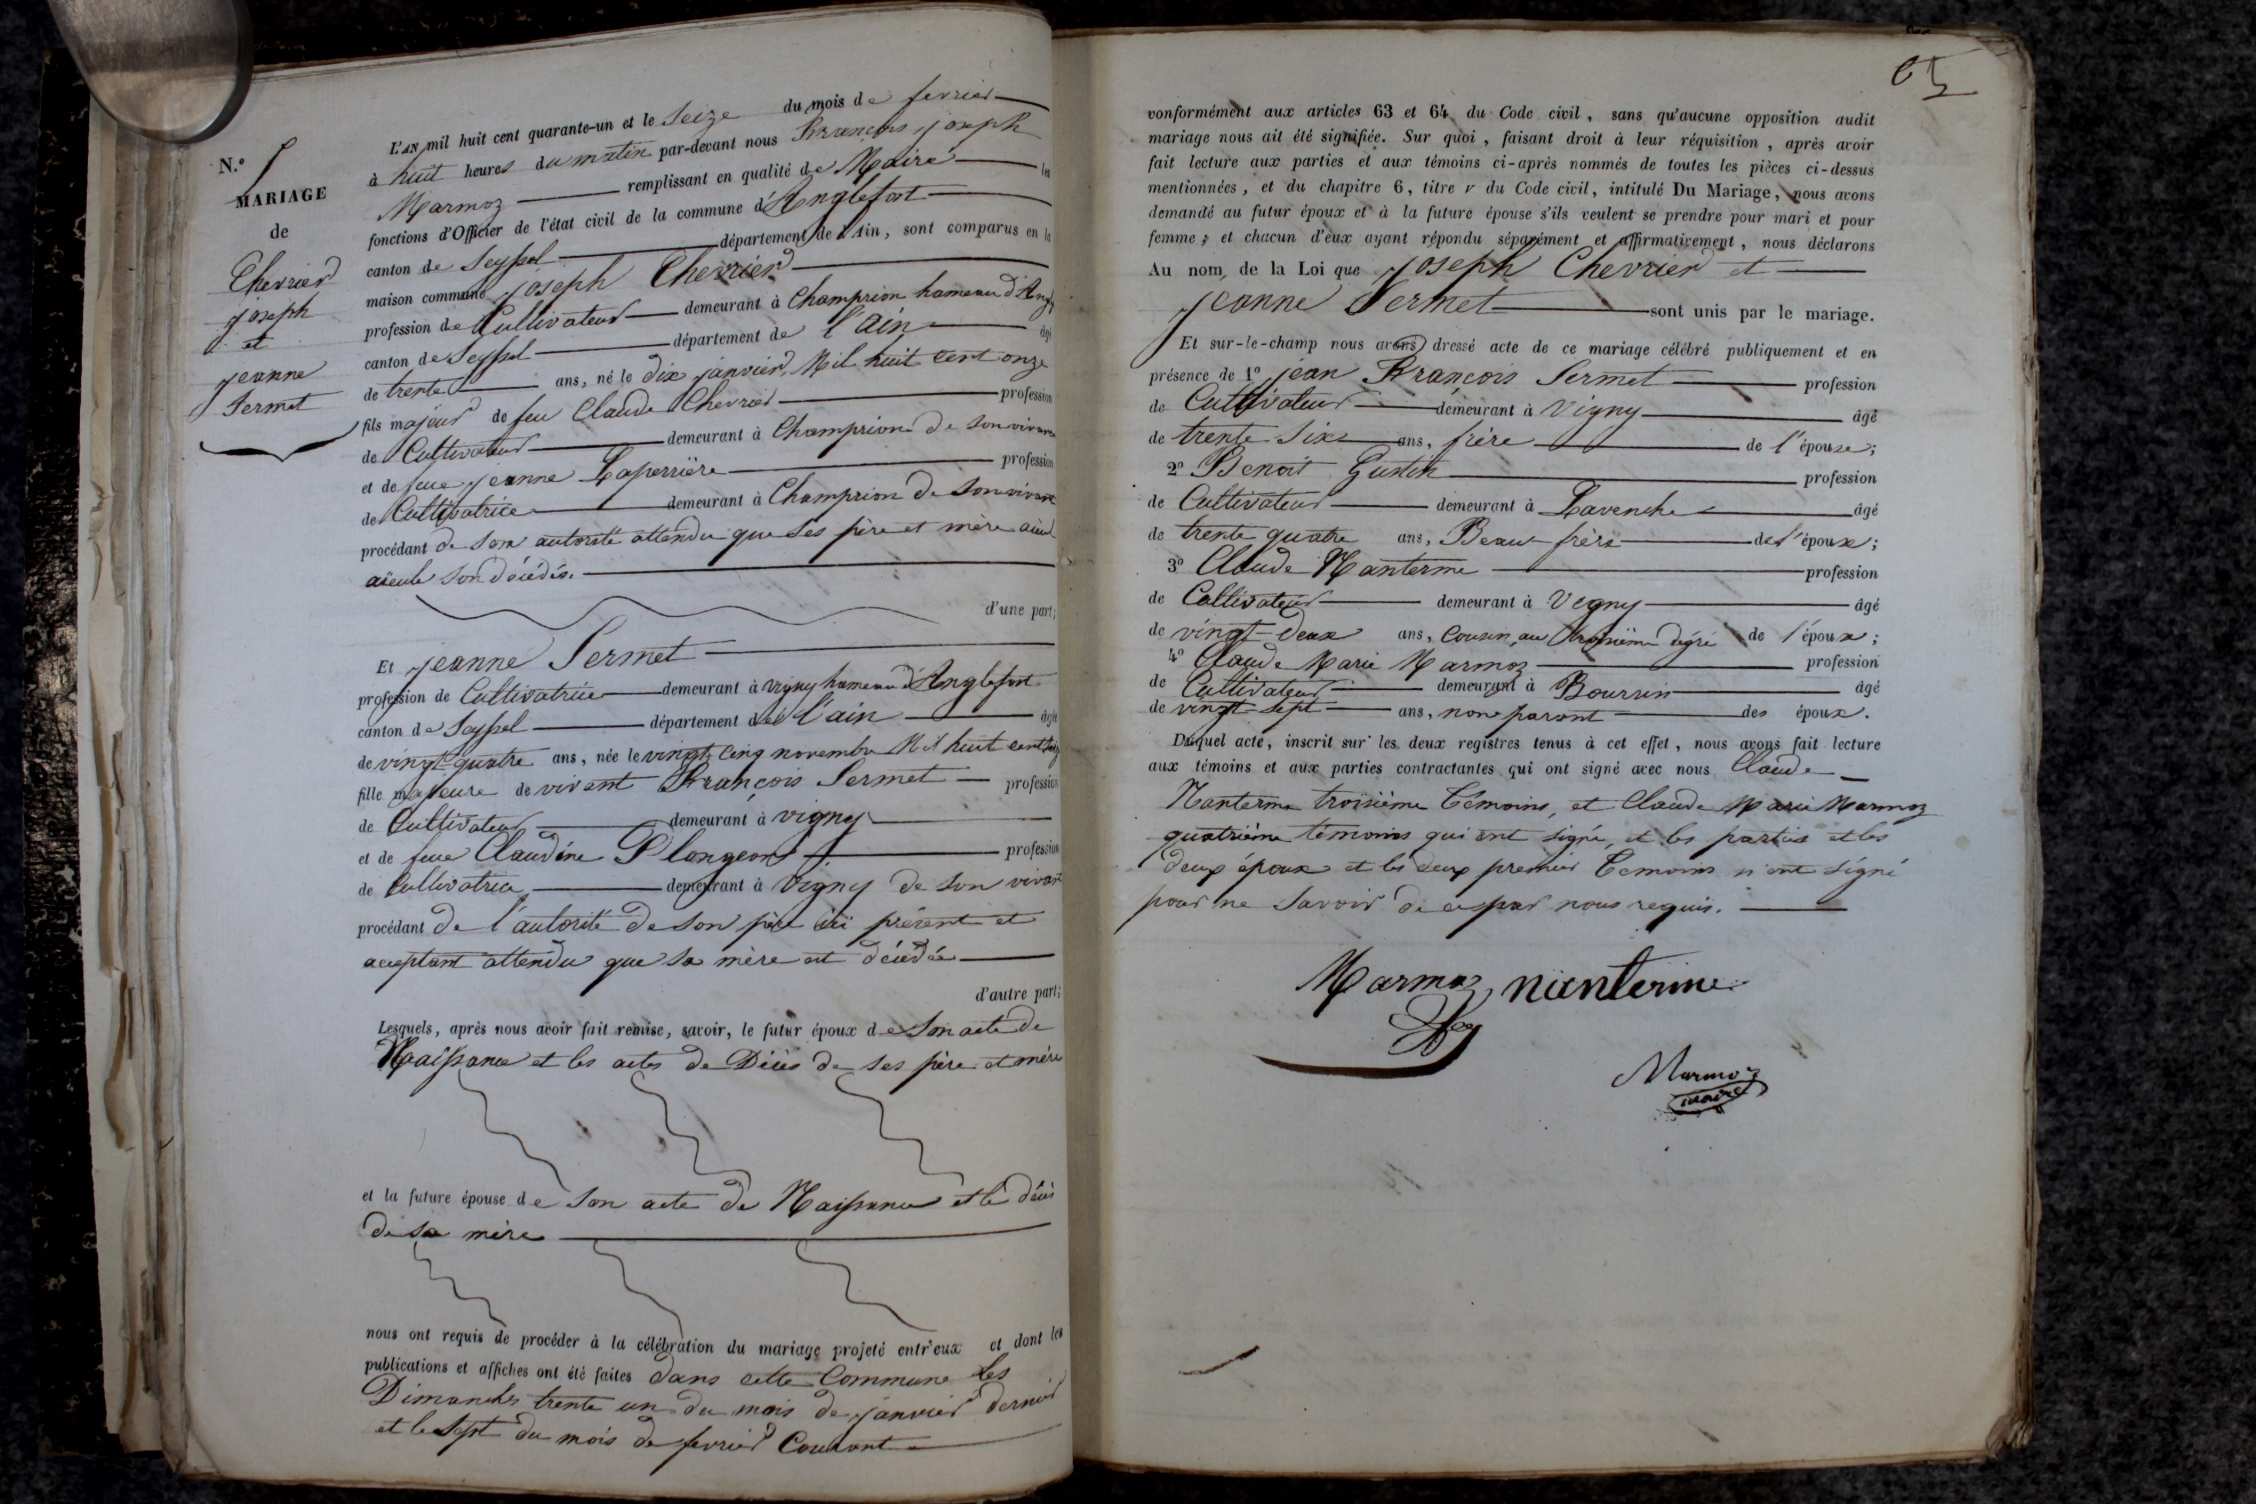 N.º
MARIAGE
de
Chevrier
joseph
et
jeanne
Sermet
L'AN mil huit cent quarante-un et le Seize du mois de fevrier
à huit heures du matin par-devant nous François joseph
Marmoz remplissant en qualité de Maire les
fonctions d'Officier de l'état civil de la commune d'Anglefort
canton de Seyssel département de l'Ain, sont comparus en la
maison commune joseph Chevrier
profession de Cultivateur demeurant à Champrion hameau d'Angl
canton de Seyssel département de l'ain âgé
de trente ans, né le dix janvier Mil huit cent onze
fils majeur de feu Claude Chevrier profession
de Cultivateur demeurant à Champrion de son vivant
et de feue jeanne Laperrière profession
de Cultivatrice demeurant à Champrion de son vivant
procédant de son autorité attendu que ses père et mère aieul
aïeule son décédés.
d'une part;
Et jeanne Sermet
profession de Cultivatrice demeurant à vigny hameau d'Anglefort
canton de Seyssel département de l'ain âgée
de vingt-quatre ans, née le vingt cinq novembre Mil huit cent seize
fille majeure de vivant François Sermet profession
de Cultivateur demeurant à vigny
et de feue Claudine Plongeon profession
de Cultivatrice demeurant à vigny de son vivant
procédant de l'autorité de son père ici présent et
acceptant attendu que sa mère est décédée
d'autre part;
Lesquels, après nous avoir fait remise, savoir, le futur époux de son acte de
Naissance et les actes de Décès de ses père et mère
et la future épouse de son acte de Naissance et le décès
de sa mère
nous ont requis de procéder à la célébration du mariage projeté entr'eux et dont les
publications et affiches ont été faites dans cette Commune les
Dimanches trente un du mois de janvier dernier
et le sept du mois de fevrier Courant
65
vonformément aux articles 63 et 64 du Code civil, sans qu'aucune opposition audit
mariage nous ait été signifiée. Sur quoi, faisant droit à leur réquisition, après avoir
fait lecture aux parties et aux témoins ci-après nommés de toutes les pièces ci-dessus
mentionnées, et du chapitre 6, titre v du Code civil, intitulé Du Mariage, nous avons
demandé au futur époux et à la future épouse s'ils veulent se prendre pour mari et pour
femme; et chacun d'eux ayant répondu séparément et affirmativement, nous déclarons
Au nom de la Loi que joseph Chevrier et
jeanne Sermet sont unis par le mariage.
Et sur-le-champ nous avons dressé acte de ce mariage célébré publiquement et en
présence de 1º jean François Sermet profession
de Cultivateur demeurant à Vigny âgé
de trente Six ans, frère de l'épouse;
2º Benoit Gustin profession
de Cultivateur demeurant à Lavenche âgé
de trente quatre ans, Beau frère de l'époux;
3º Claude Nanterme profession
de Cultivateur demeurant à Vegny âgé
de vingt-deux ans, Cousin au troisième dégré de l'époux;
4º Claude Marie Marmoz profession
de Cultivateur demeurant à Bourrin âgé
de vingt-sept ans, non parant des époux.
Duquel acte, inscrit sur les deux registres tenus à cet effet, nous avons fait lecture
aux témoins et aux parties contractantes qui ont signé avec nous Claude
Nanterme troisième témoins, et Claude Marie Marmoz
quatrième témoins qui ont signé, et les parties et les
deux époux et les deux premier témoins n'ont signé
pour ne savoir de ce par nous requis.
Marmoz nanterme
Marmoz
maire